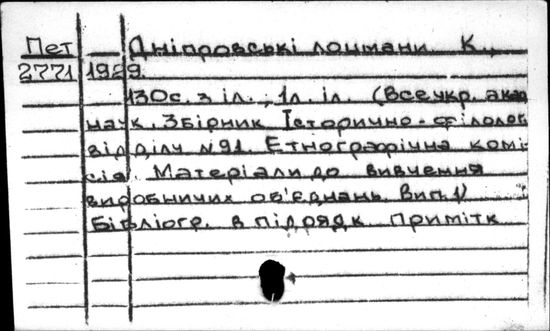 Пет Дніпровські лоцмани К.,
2771 1929.
130с. з іл., 1л. іл. (Всеукр. акад.
наук. Збірник Історично-філолог.
відділу №91. Етнографічна комі-
сія. Матеріали до вивчення
виробничих об'єднань. Вип. 1)
Бібліогр. в підрядк примітк